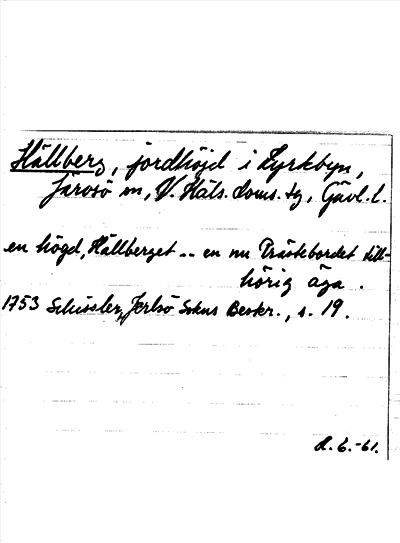 Hällberg, jordhöjd i Kyrkbyn,
Järvsö sn, V. Häls. doms. tg, Gävl. l.
en högd, Hällberget .. en nu Prästebordet till-
hörig äga.
1753 Schissler, Jerlsö Sokns Beskr., s. 19.
R. E. -61.